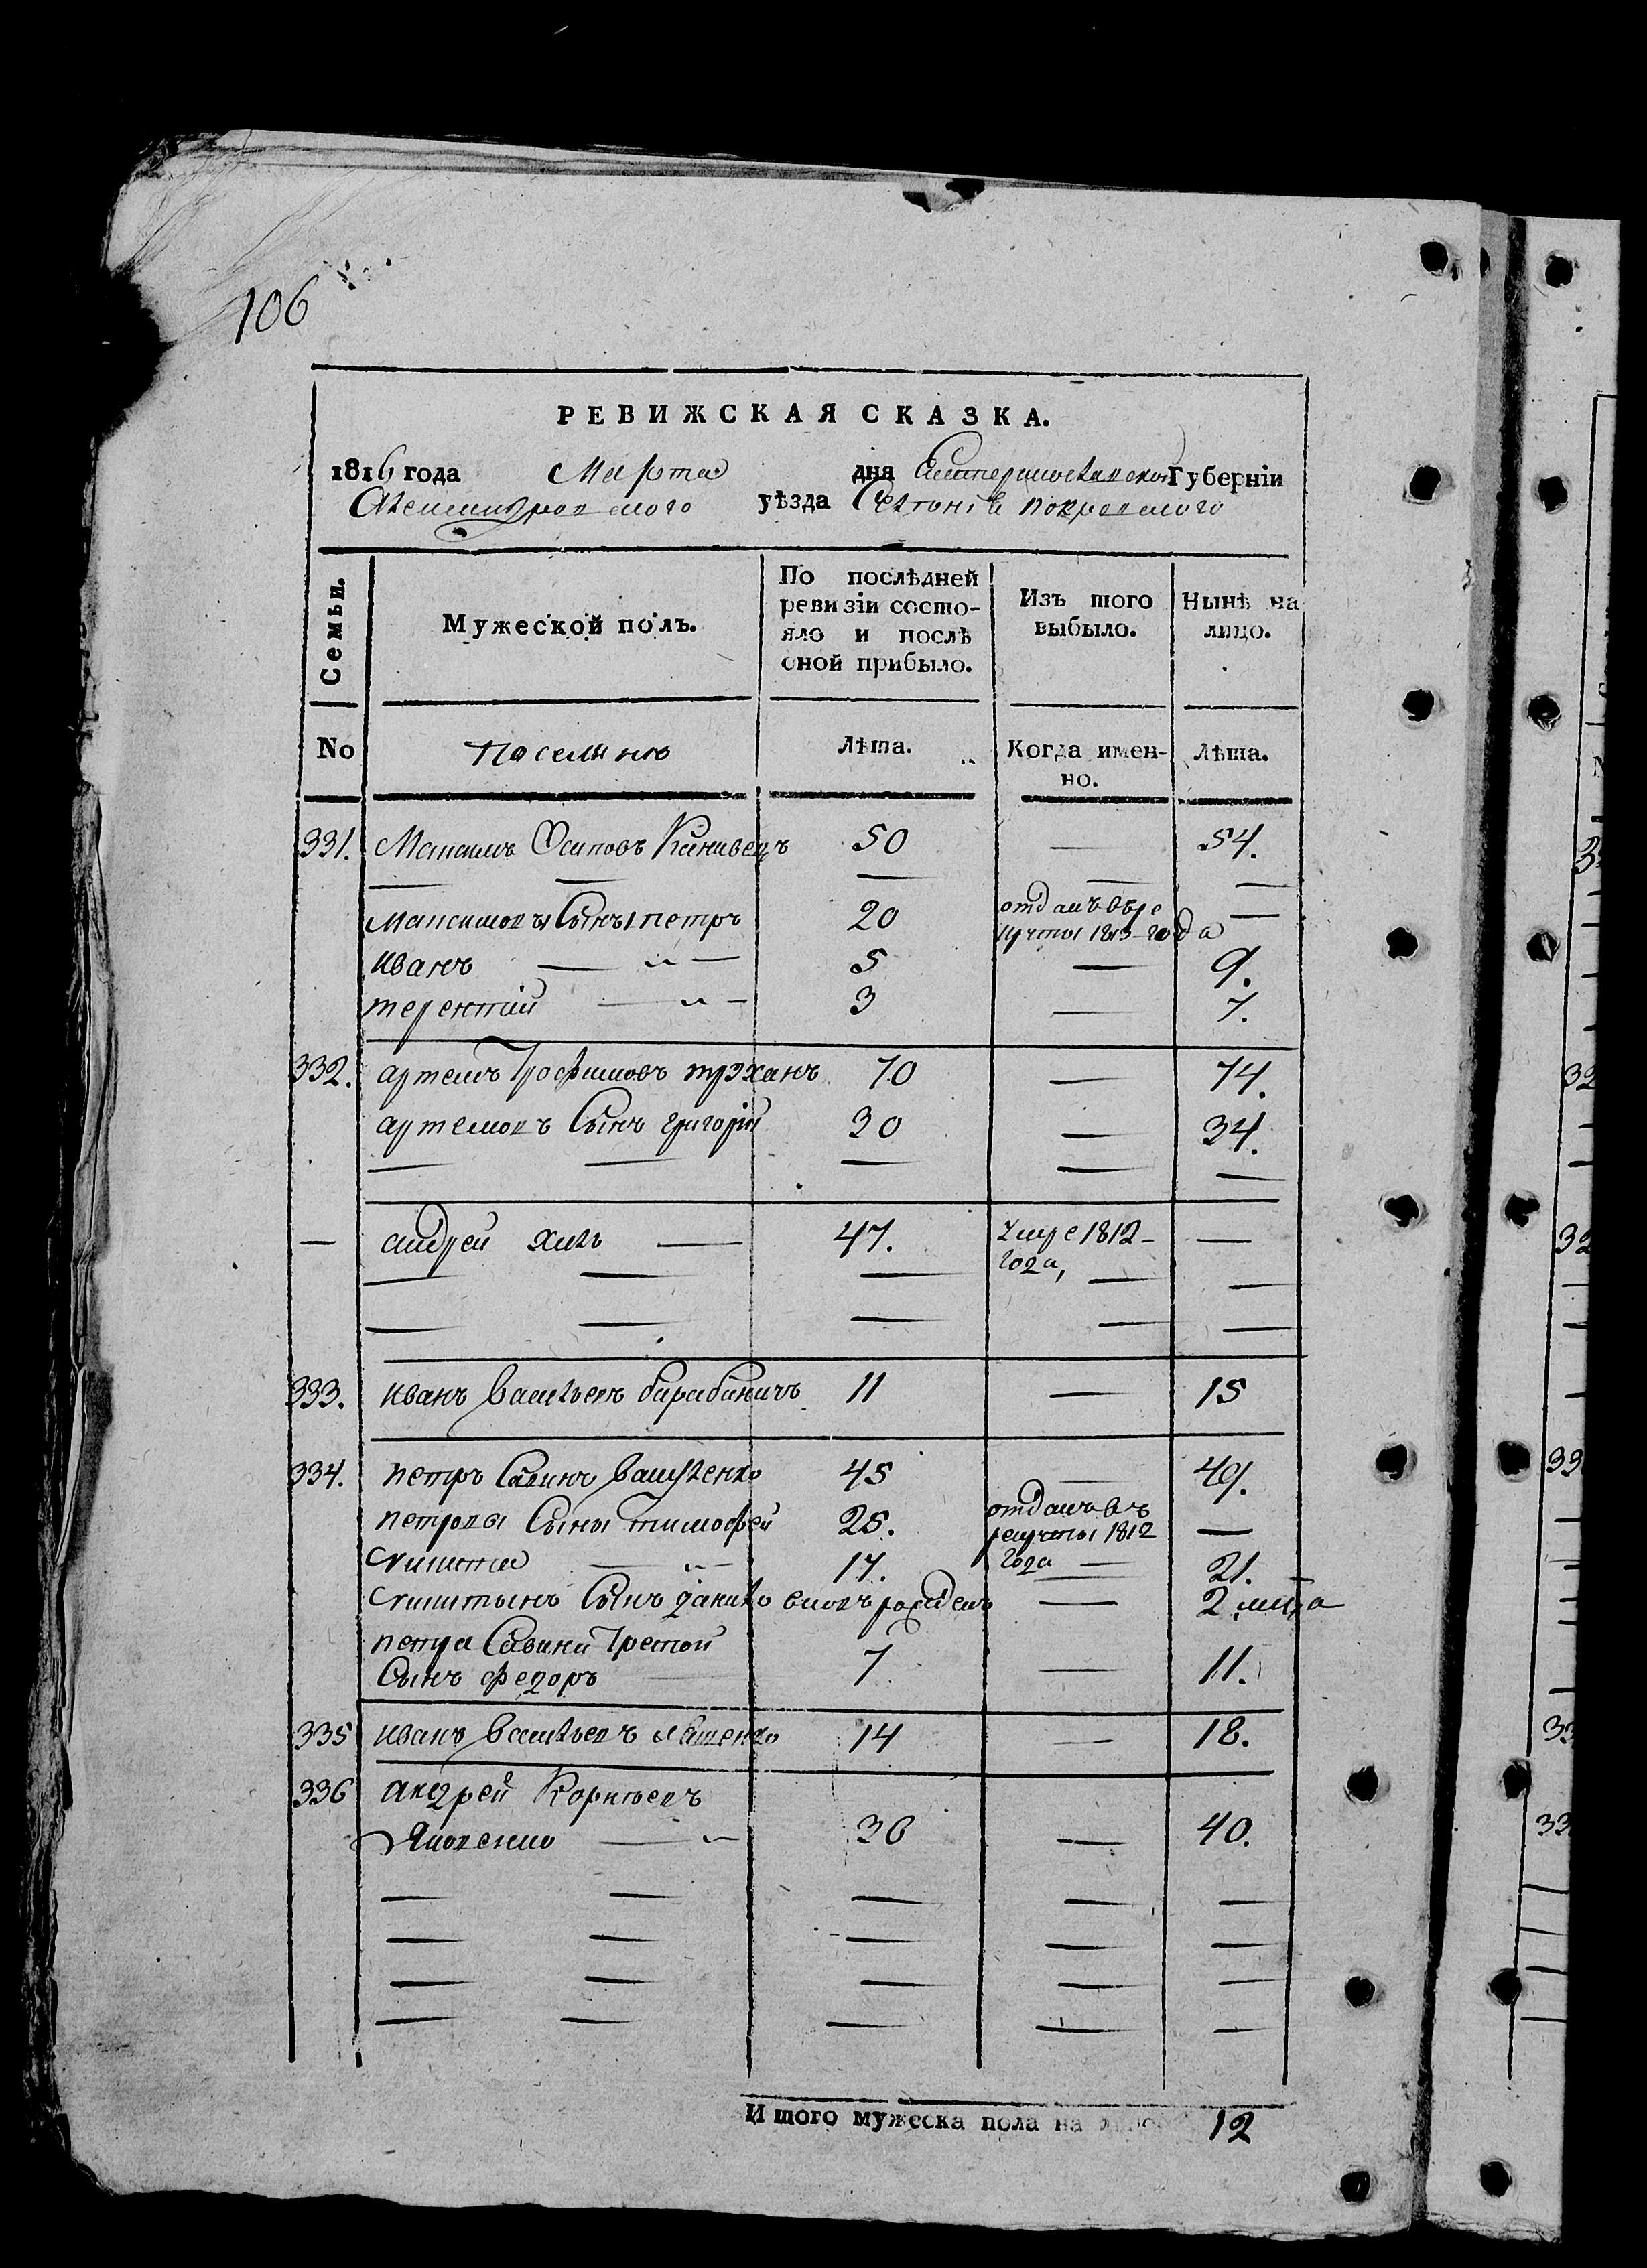 106
РЕВИЖСКАЯ СКАЗКА.
1816 года Марта дня Екатеринославской Губерніи
Александровского уѣзда Селенія Покровского
Семьи.
Мужеской полъ.
По послѣдней ревизіи состояло и послѣ оной прибыло.
Изъ того выбыло.
Нынѣ на лицо.
No
Лѣта.
Когда именно.
Лѣта.
331. Максимъ ОсиповъКанивецъ 50 — 54.
Максимовы Сынъы петръ 20 отданъ въ ре
круты 1813 года —
иванъ — " — 5 — 9.
терентій — " — 3 — 7.
332. артемъ Трофимовъ труханъ 70 — 74.
артемовъ Сынъ григорій 30 — 34.
— андрей хиль — 47. умре 1812 —
года,
333. иванъ васильевъ барабаничъ 11 — 15
334. петръ Савинъ 45 — 49.
петровы Сыны тимофей 25. отданъ въ
рекруты 1812 —
никита — " — 17. года — 21.
никитынъ Сынъ данило вновъ рожденъ — 2 лита
петра Савина Третой
Сынъ федоръ 7 — 11.
335 иванъ васильевъ 14 — 18.
336 андрей Корнѣевъ
Яковенко — " 36 — 40.
Итого мужеска пола на лицо 12